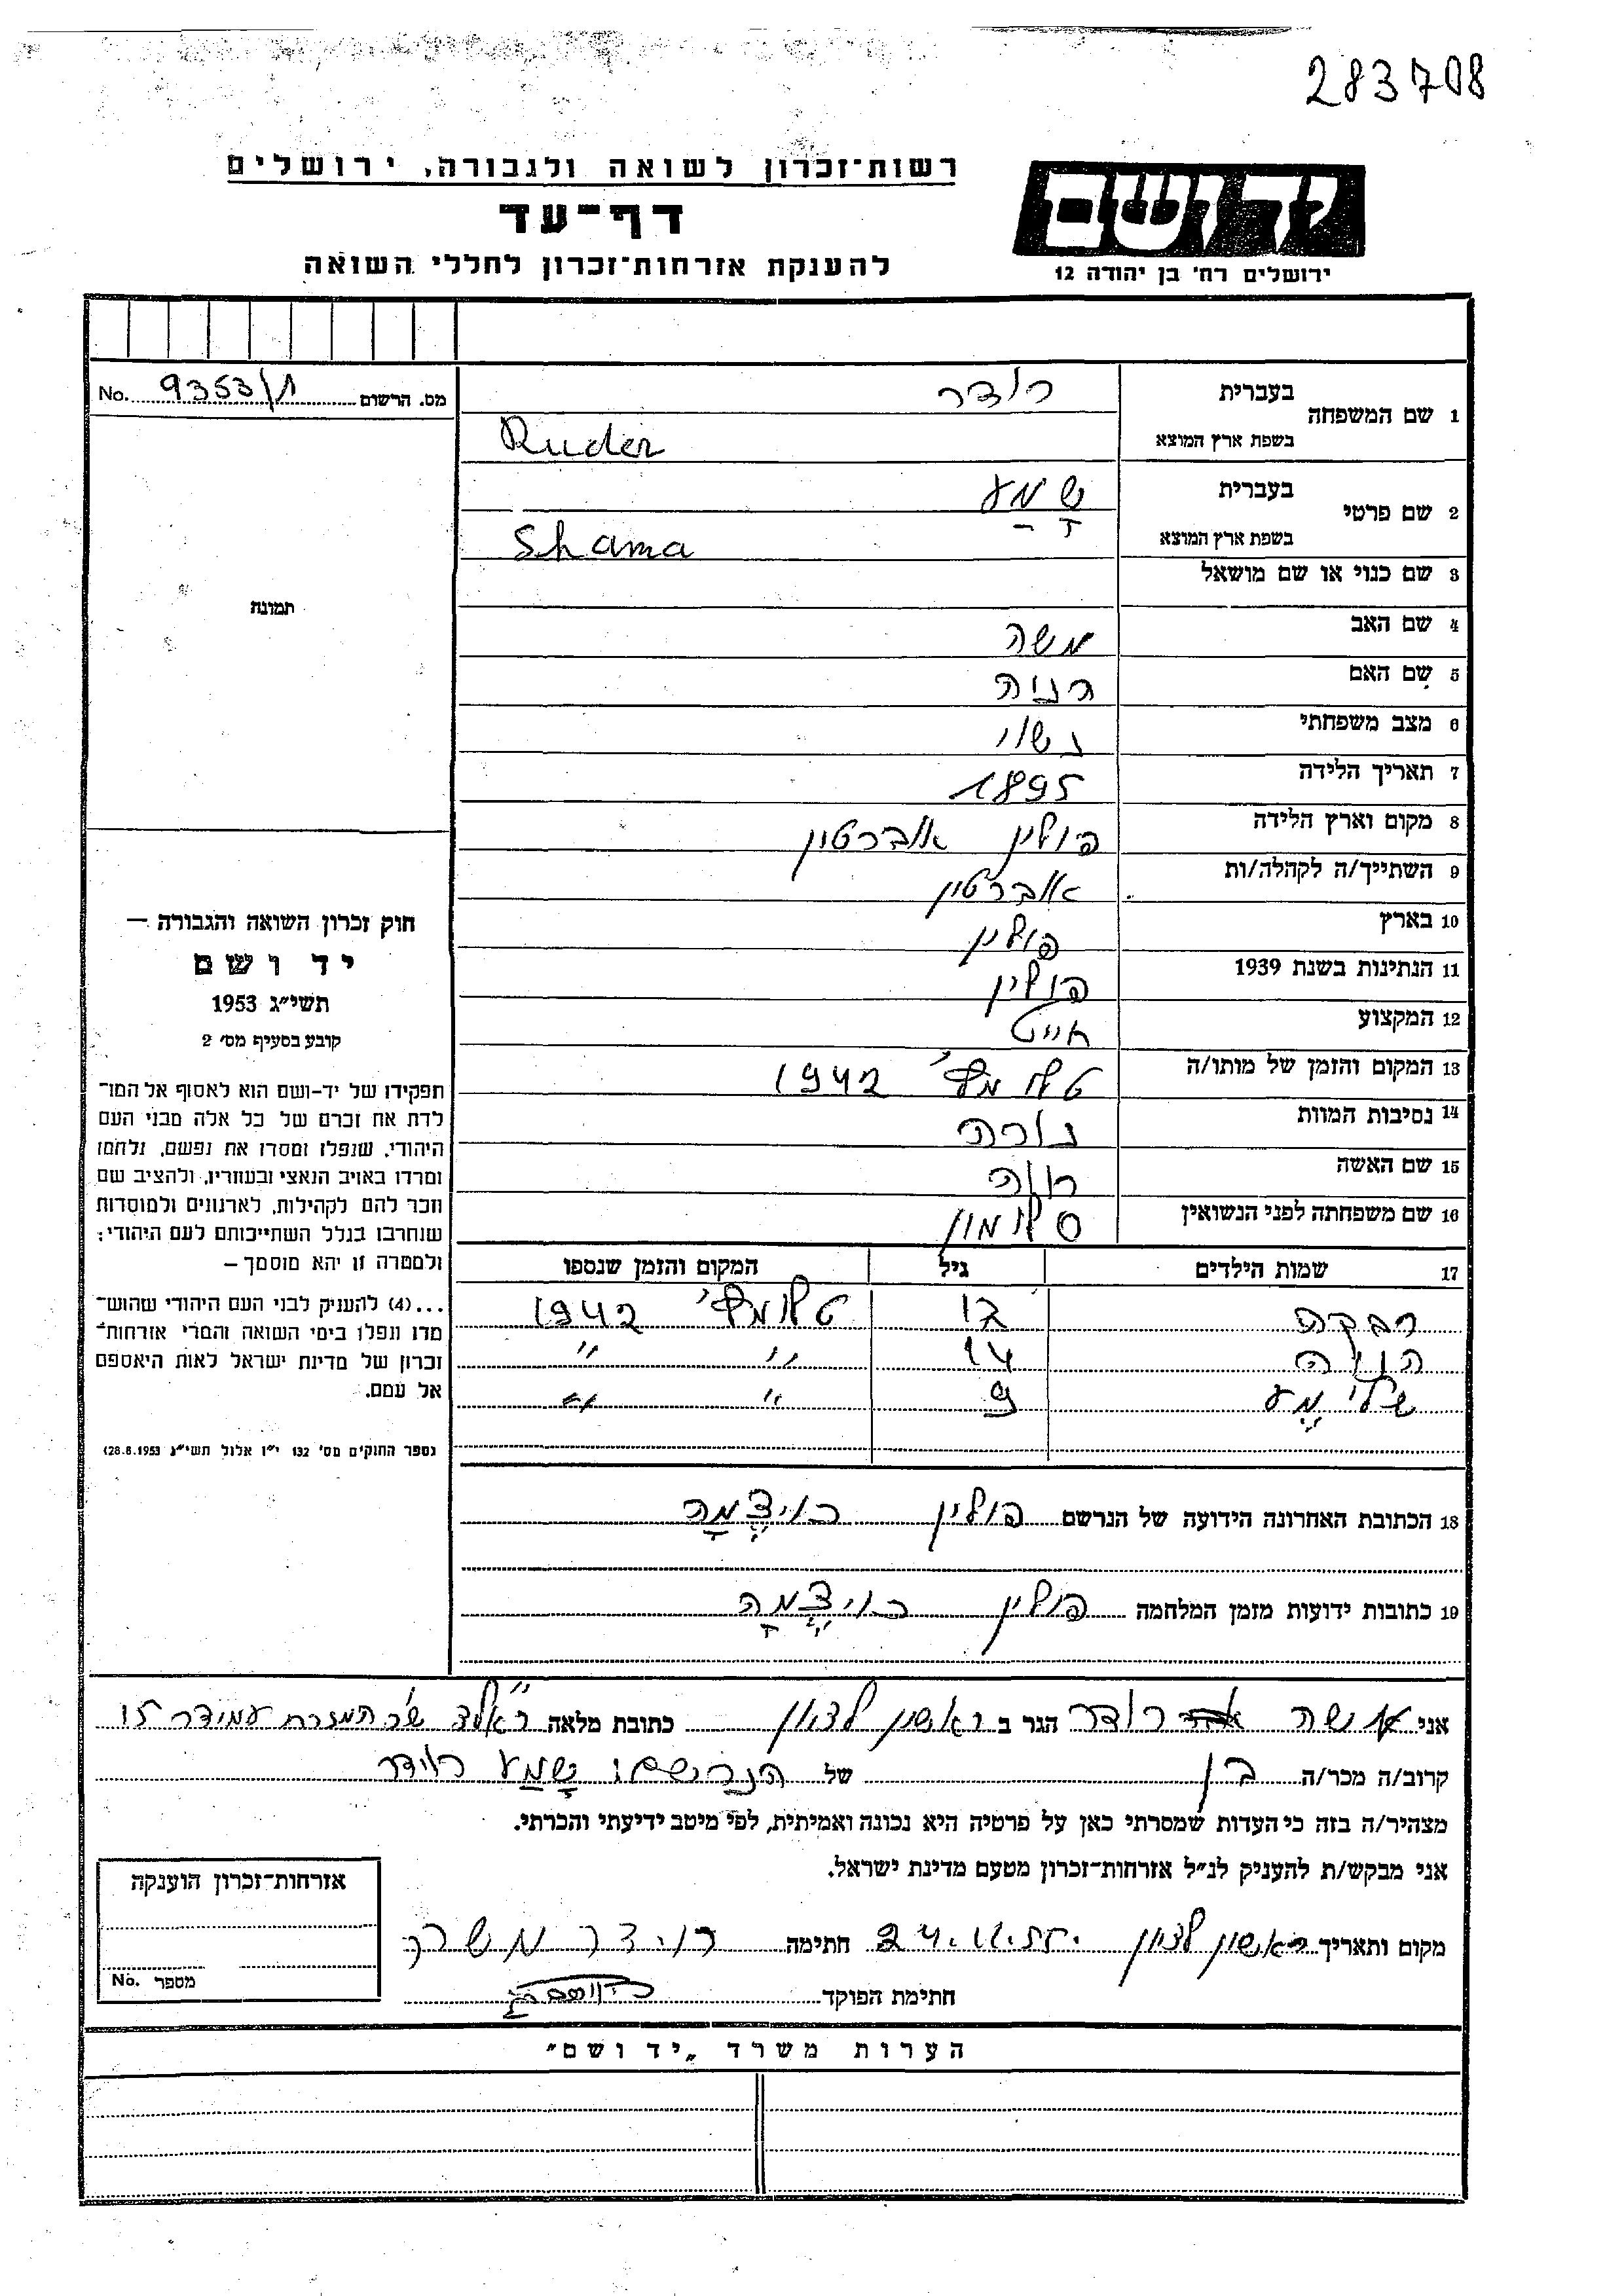 283708
רשות־זכרון לשואה ולגבורה, ירושלים
דף־עד
להענקת אזרחות־זכרון לחללי השואה
יד ושם
ירושלים רח' בן יהודה 12
מס. הרשום 9353/ No.
1 שם המשפחה
בעברית רודר
בשפת ארץ המוצא Ruder
2 שם פרטי
בעברית שמע
בשפת ארץ המוצא Shama
3 שם כנוי או שם מושאל
4 שם האב משה
5 שם האם חנה
6 מצב משפחתי נשוי
7 תאריך הלידה 1895
8 מקום וארץ הלידה פולין אוברטון
9 השתייך/ה לקהלה/ות אוברטין
10 בארץ פולין
11 הנתינות בשנת 1939 פולין
12 המקצוע חייט
13 המקום והזמן של מותו/ה טלומץ' 1942
14 נסיבות המוות נורה
15 שם האשה חוה
16 שם משפחתה לפני הנשואין סלומון
17 שמות הילדים גיל המקום והזמן שנספו
רבקה 12 טלומץ' 1942
חויה 14 " "
שלימע 9 " "
18 הכתובת האחרונה הידועה של הנרשם פולין
19 כתובות ידועות מזמן המלחמה פולין
תמונה
חוק זכרון השואה והגבורה –
יד ושם
תשי״ג 1953
קובע בסעיף מס׳ 2
תפקידו של יד-ושם הוא לאסוף אל המו־
לדת את זכרם של כל אלה מבני העם
היהודי, שנפלו ומסרו את נפשם, נלחמו
ומרדו באויב הנאצי ובעוזריו, ולהציב שם
וזכר להם לקהילות, לארגונים ולמוסדות
שנחרבו בגלל השתייכותם לעם היהודי;
ולמטרה זו יהא מוסמך –
...(4) להעניק לבני העם היהודי שהוש־
מדו ונפלו בימי השואה והמרי אזרחות־
זכרון של מדינת ישראל לאות היאספם
אל עמם.
(ספר החוקים מס׳ 132 י״ז אלול תשי״ג 28.8.1953)
אני משה רודר הגר ב ראשון לציון כתובת מלאה ראלצ שכ המזרח עמידר 15
קרוב/ה מכר/ה בן של הנרשם: שמע רודר
מצהיר/ה בזה כי העדות שמסרתי כאן על פרטיה היא נכונה ואמיתית, לפי מיטב ידיעתי והכרתי.
אני מבקש/ת להעניק לנ״ל אזרחות־זכרון מטעם מדינת ישראל.
מקום ותאריך ראשון לציון חתימה רודר משה
חתימת הפוקד
אזרחות־זכרון הוענקה
מספר No.
הערות משרד „יד ושם״